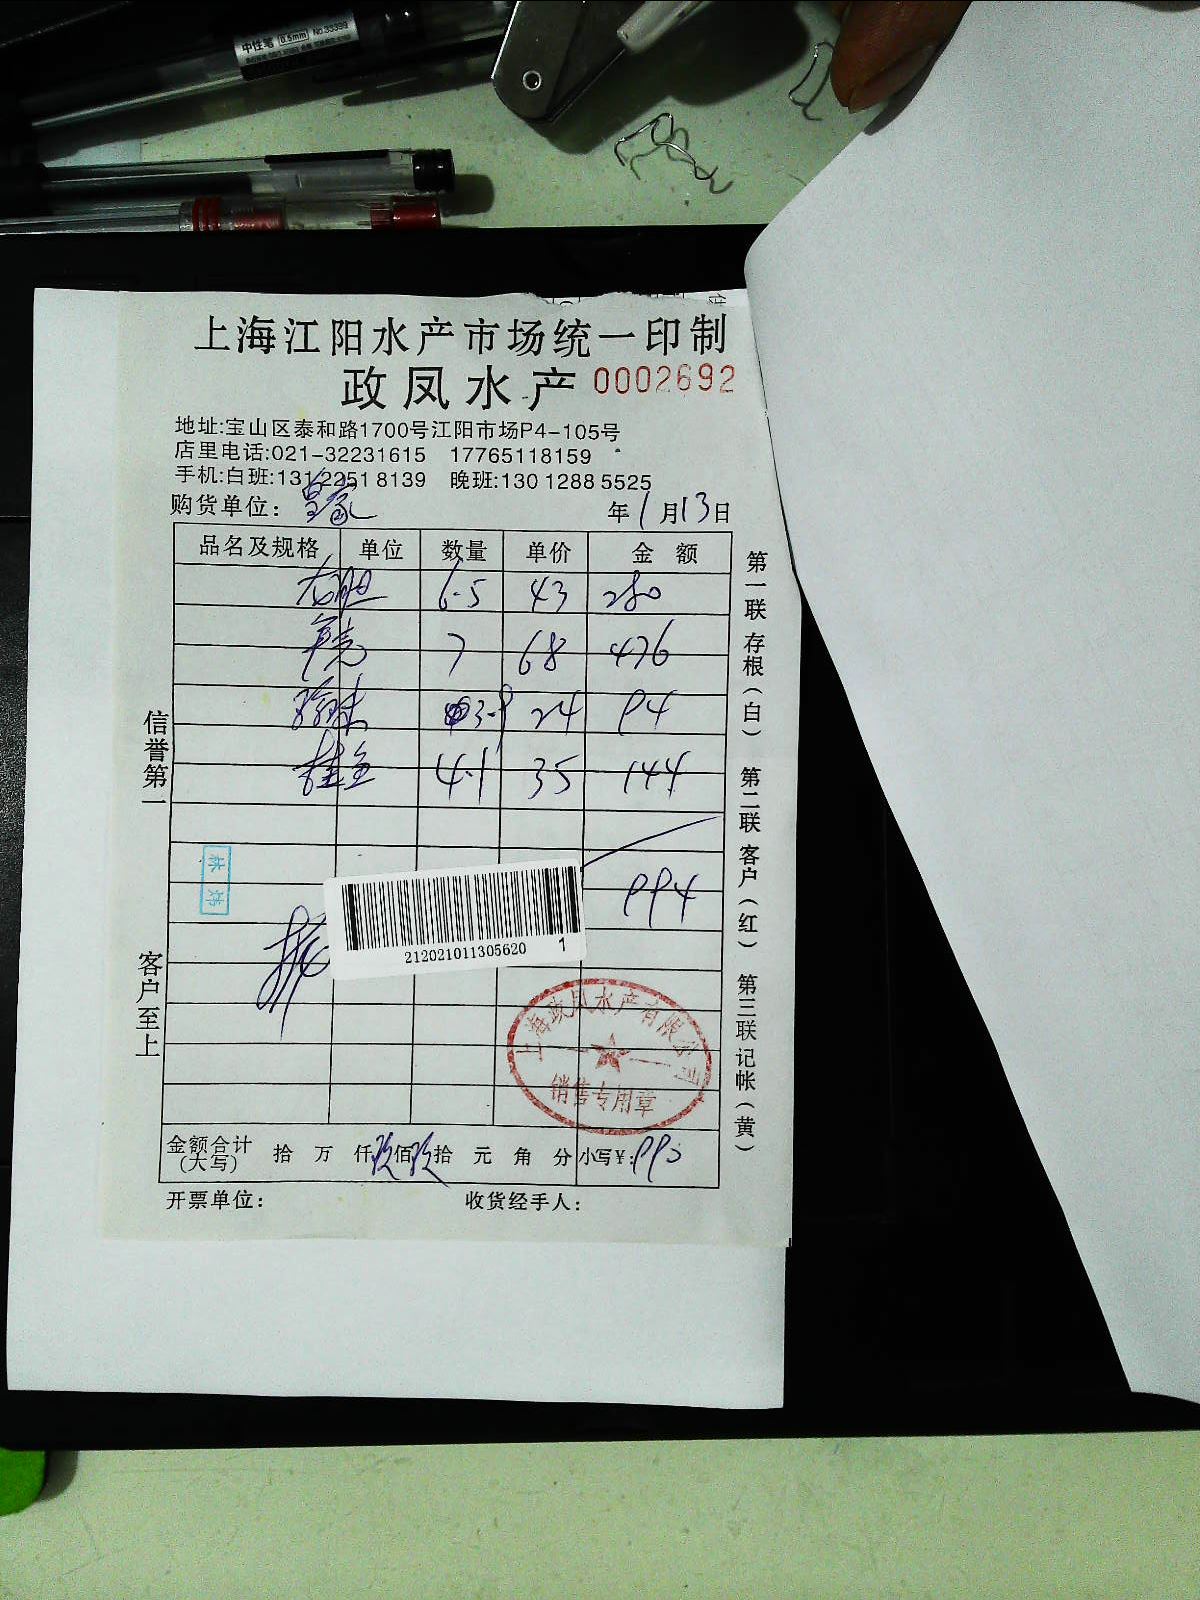 中性笔 0.5mm No.35399
上海江阳水产市场统一印制
政凤水产 0002692
地址:宝山区泰和路1700号江阳市场P4-105号
店里电话:021-32231615 17765118159
手机:白班:131 2251 8139 晚班:130 1288 5525
购货单位: 皇家 年1月13日
品名及规格 单位 数量 单价 金额
6.5 43 280
7 68 476
3.9 24 94
桂鱼 4.1 35 144
994
212021011305620 1
上海政凤水产有限公司
销售专用章
金额合计(大写) 拾 万 仟 玖佰 玖拾 元 角 分 小写¥:990
开票单位: 收货经手人:
信誉第一 客户至上
第一联 存根(白) 第二联 客户(红) 第三联 记帐(黄)